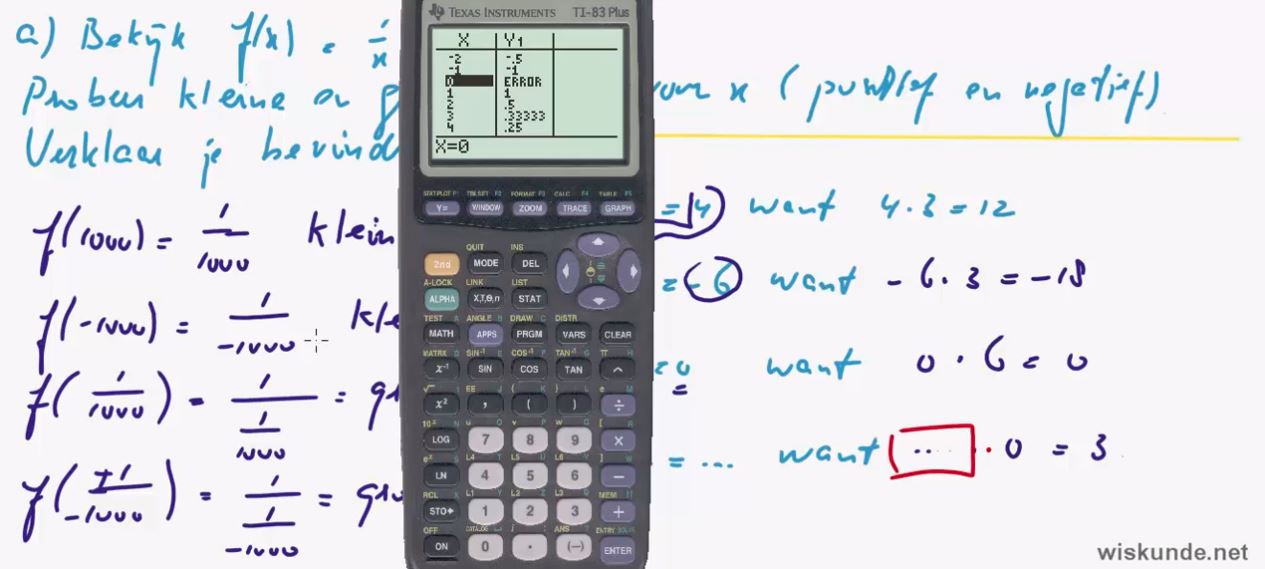 a) Bekijk f(x) = 1/x
Probeer kleine en g voor x (positief en negatief)
Verklaar je bevind
f(1000) = 1/1000 klein
f(-1000) = 1/-1000 kle
f(1/1000) = 1/(1/1000) = gr
f(1/-1000) = 1/(1/-1000) = gro
= 4 want 4 · 3 = 12
= -6 want -6 · 3 = -18
= 0 want 0 · 6 = 0
= ... want ... · 0 = 3
TEXAS INSTRUMENTS TI-83 Plus
X Y1
-2 -.5
-1 -1
0 ERROR
1 1
2 .5
3 .33333
4 .25
X=0
STAT PLOT F1 TBLSET F2 FORMAT F3 CALC F4 TABLE F5
Y= WINDOW ZOOM TRACE GRAPH
QUIT INS
2nd MODE DEL
A-LOCK LINK LIST
ALPHA X,T,Θ,n STAT
TEST A ANGLE B DRAW C DISTR
MATH APPS PRGM VARS CLEAR
MATRX D SIN⁻¹ E COS⁻¹ F TAN⁻¹ G π H
x⁻¹ SIN COS TAN ^
√ I EE J { K } L e M
x² , ( ) ÷
10ˣ N u O v P w Q [ R
LOG 7 8 9 ×
eˣ S L4 T L5 U L6 V ] W
LN 4 5 6 −
RCL X L1 Y L2 Z L3 θ MEM "
STO▸ 1 2 3 +
OFF CATALOG i : ANS ? ENTRY SOLVE
ON 0 . (−) ENTER
wiskunde.net